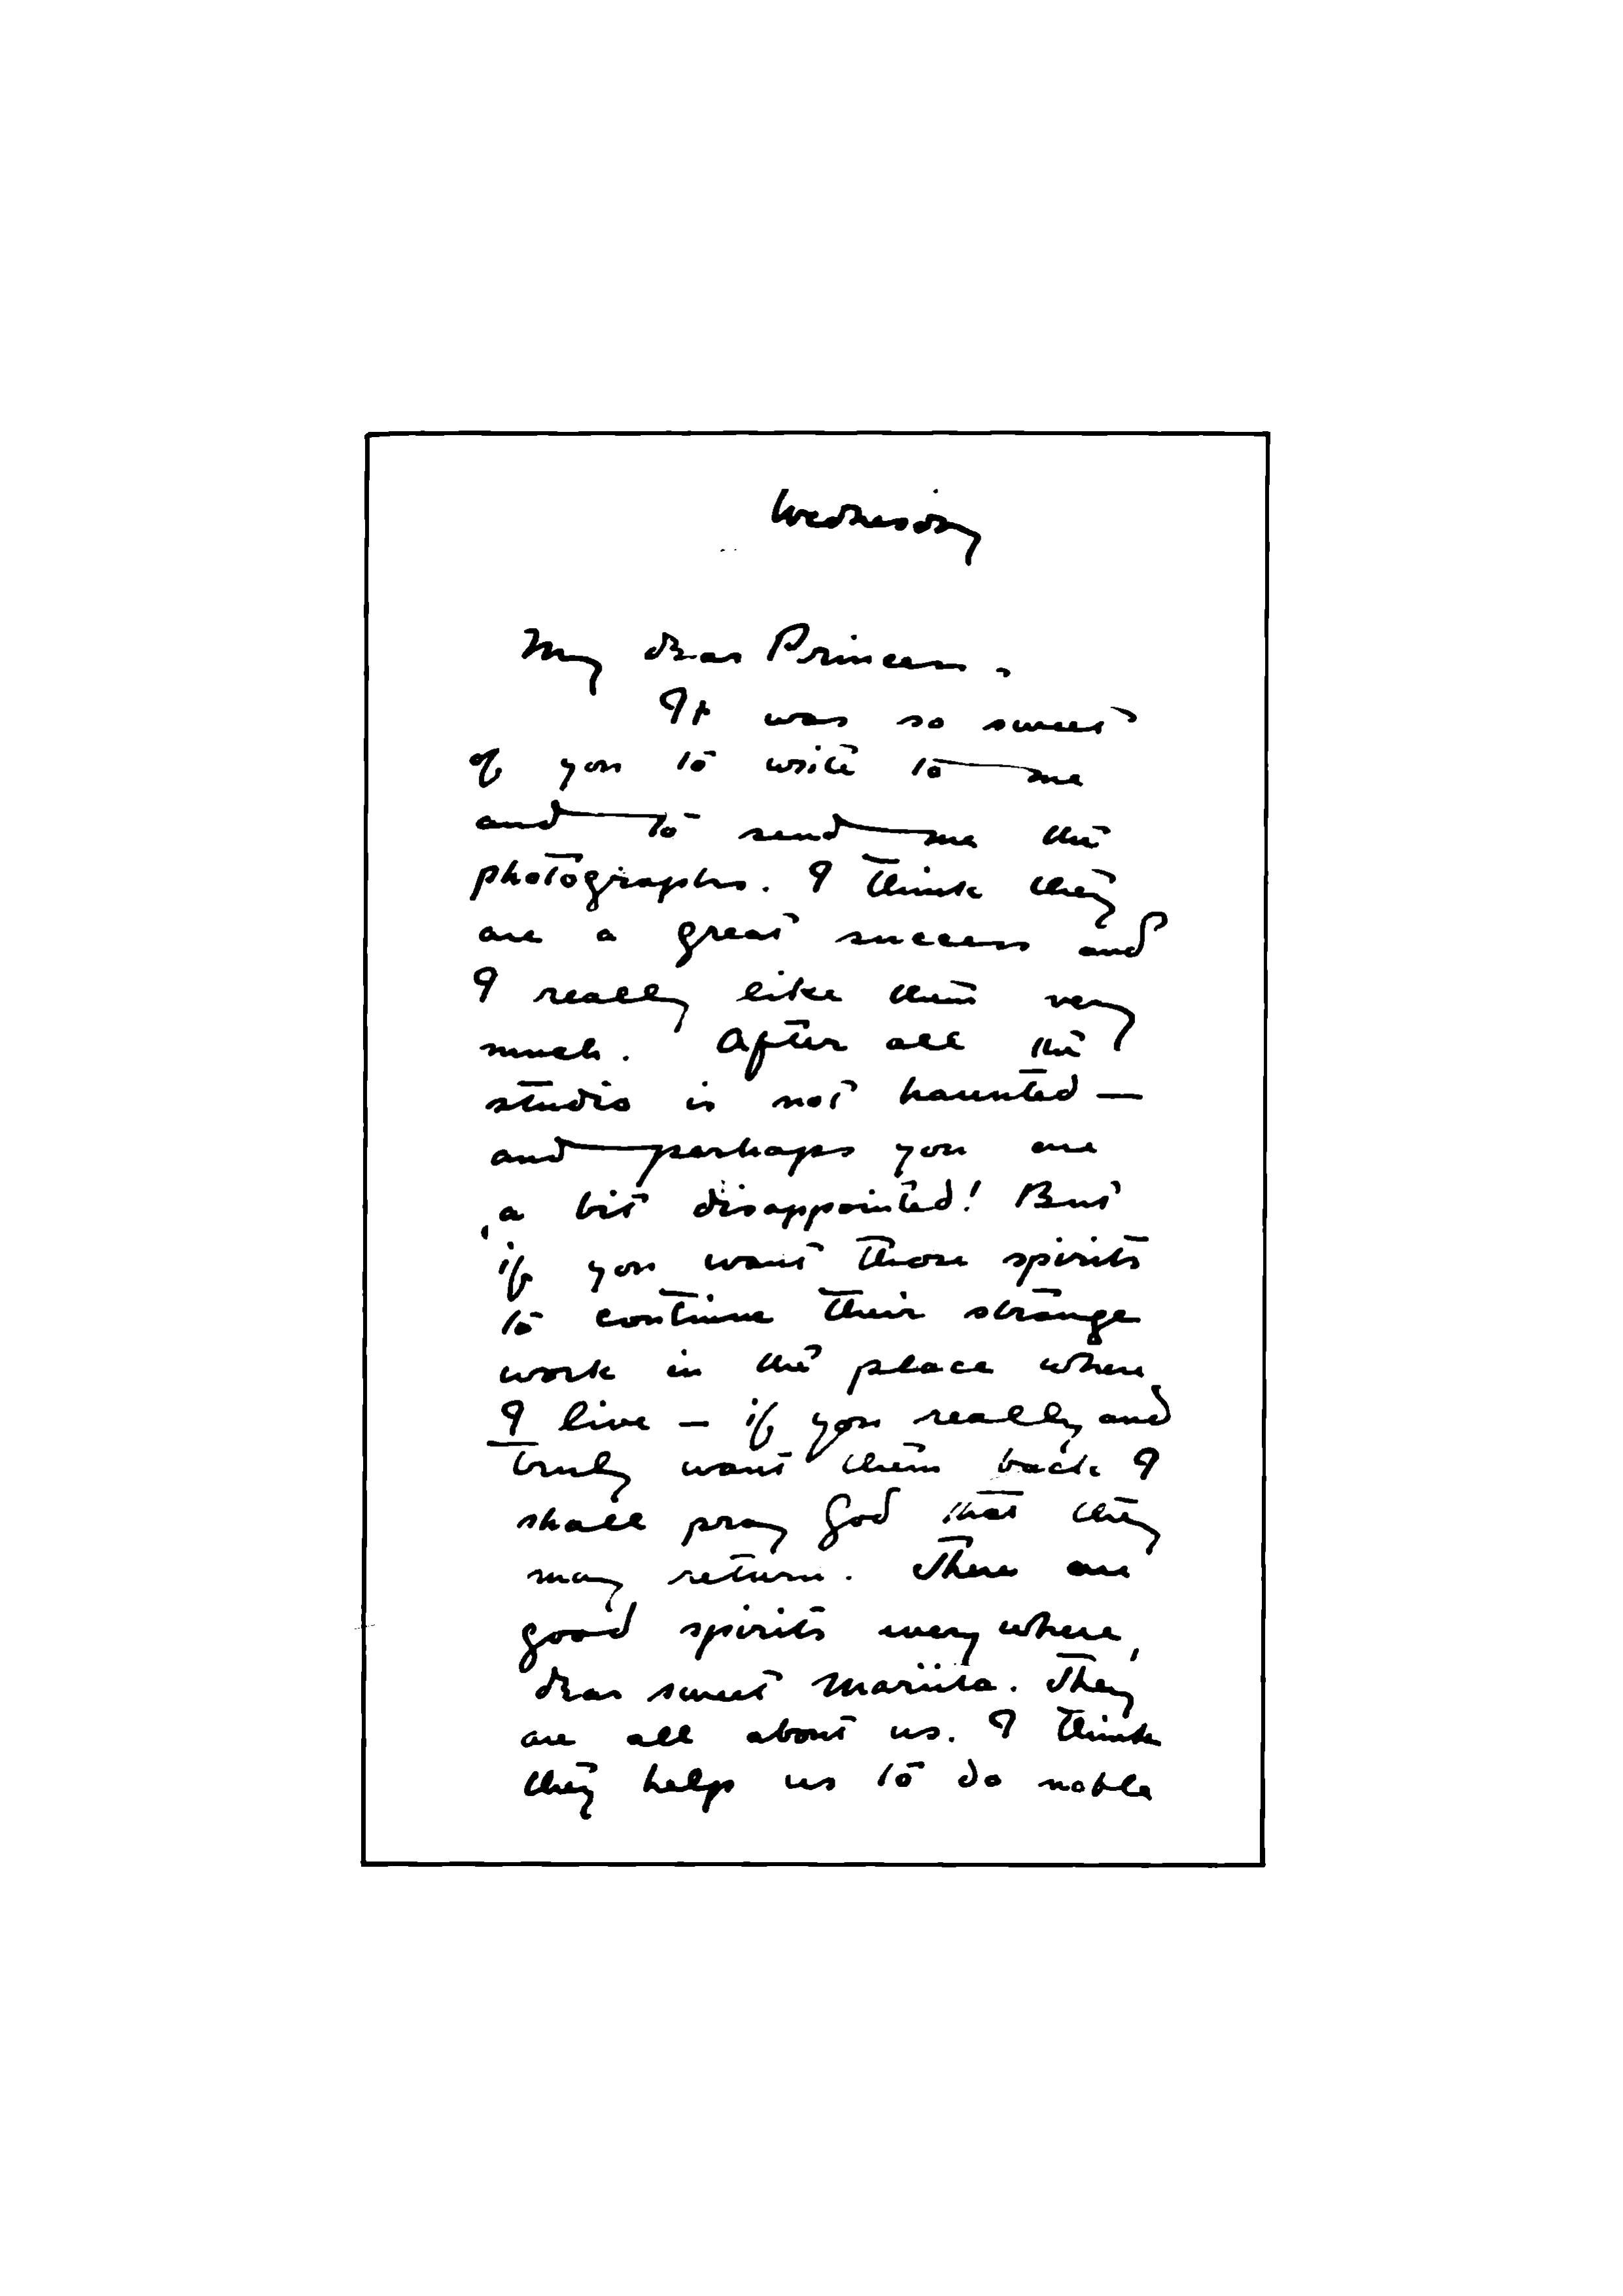 Wednesday
My dear Princess.
It was so sweet
of you to write to me
and to send me the
photographs. I think they
are a great success and
I really like them very
much. After all the
studio is not haunted —
and perhaps you are
a bit disappointed! But
if you want those spirits
to continue their strange
work in the place where
I live — if you really and
truly want them back I
shall pray God that they
may return. There are
good spirits every where,
dear sweet Mariita. They
are all about us. I think
they help us to do noble